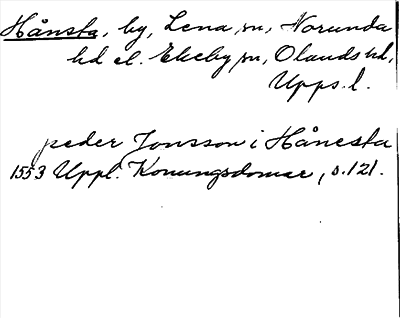 Hånsta, by, Lena sn, Norunda
hd el. Ekeby sn, Olands hd,
Upps. l.
peder Jonsson i Hånesta
1553 Uppl. Konungsdomar, s. 121.